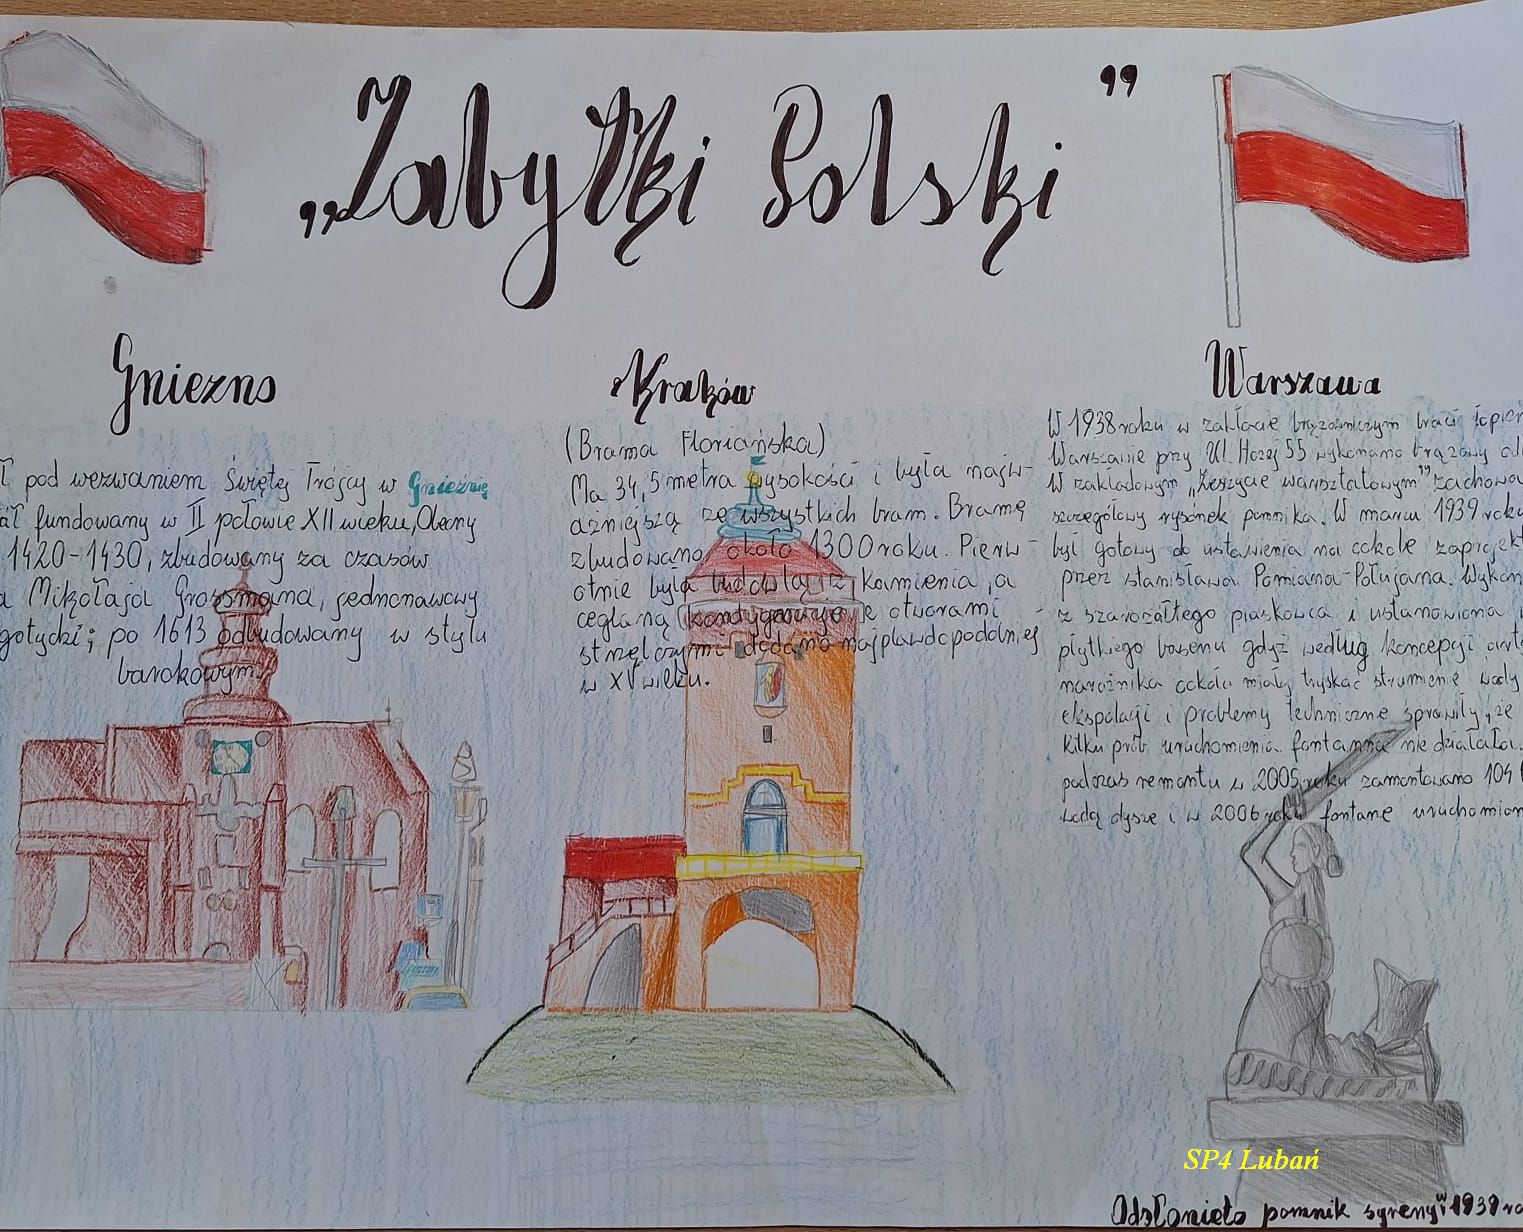 „Zabytki Polski”
Gniezno
ł pod wezwaniem Świętej Trójcy w Gnieźnie
ał fundowany w II połowie XII wieku, Obecny
1420-1430, zbudowany za czasów
a Mikołaja Grossmana, jednonawowy
gotycki; po 1613 odbudowany w stylu
barokowym.
Kraków
(Brama Floriańska)
Ma 34,5 metra wysokości i była najw-
ażniejszą ze wszystkich bram. Bramę
zbudowano około 1300 roku. Pierw-
otnie była budowlą z kamienia, a
ceglaną kondygnację z otworami
strzelczymi dodano najprawdopodobniej
w XV wieku.
Warszawa
W 1938 roku w zakładzie brązowniczym braci Łopień
Warszawie przy Ul. Hożej 55 wykonano brązowy odl
W zakładowym „Zeszycie warsztatowym” zachowa
szczegółowy rysunek pomnika. W marcu 1939 roku
był gotowy do ustawienia na cokole zaprojekt
przez Stanisława Pomiana-Połujana. Wykon
z szarożółtego piaskowca i ustanowiona
płytkiego basenu gdyż według koncepcji art
narożnika cokołu miały tryskać strumienie wody
ekspolacji i problemy techniczne sprawiły, że
kilku prób uruchomienia fontanna nie działała.
podczas remontu w 2005 roku zamontowano 104
wodą dysze i w 2006 roku fontanę uruchomion
SP4 Lubań
Odsłonięto pomnik syreny w 1939 ro